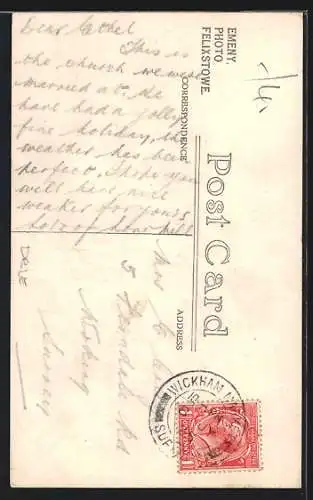 Dear Ethel
This is
the church we were
married at. We
have had a jolly
fine holiday, the
weather has been
perfect. I hope you
will have nice
for yours
lots of love
EMENY.
PHOTO
FELIXSTOWE.
CORRESPONDENCE
Post Card
ADDRESS
/4.
Mrs
5 Ferndale Rd
Woking
Surrey
WICKHAM